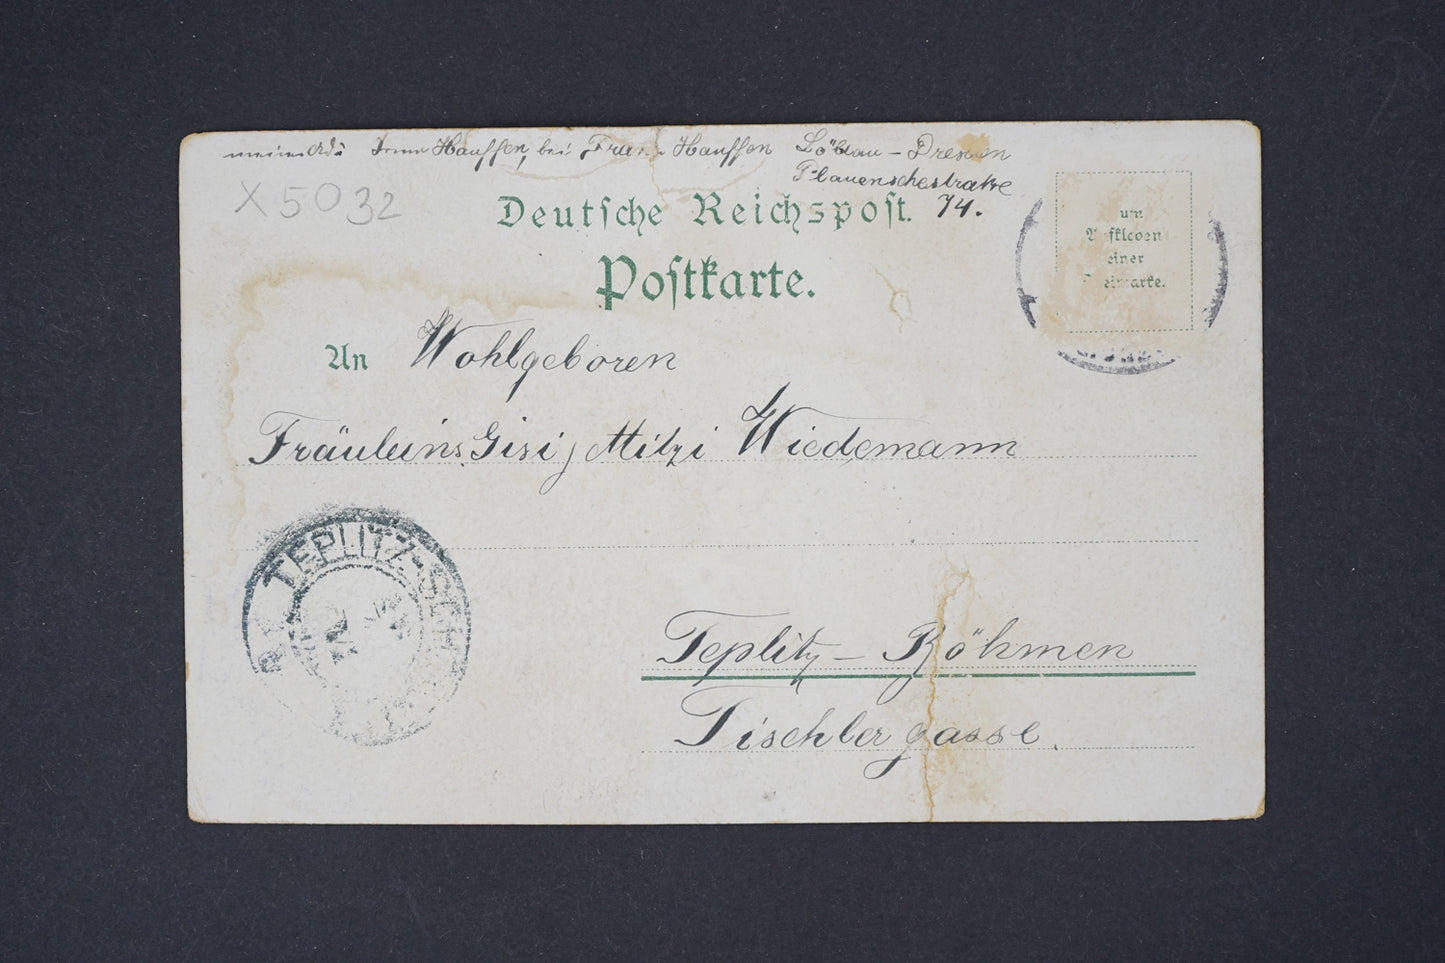 meine Adr Hauffen, bei Hauffen Löbtau - Dresden
Plauenschestraße
74.
X 5032
Deutsche Reichspost.
Postkarte.
um
einer
An Wohlgeboren
Fräuleins Gisi, Mitzi Wiedemann
TEPLITZ-SCH
Teplitz - Böhmen
Tischlergasse.